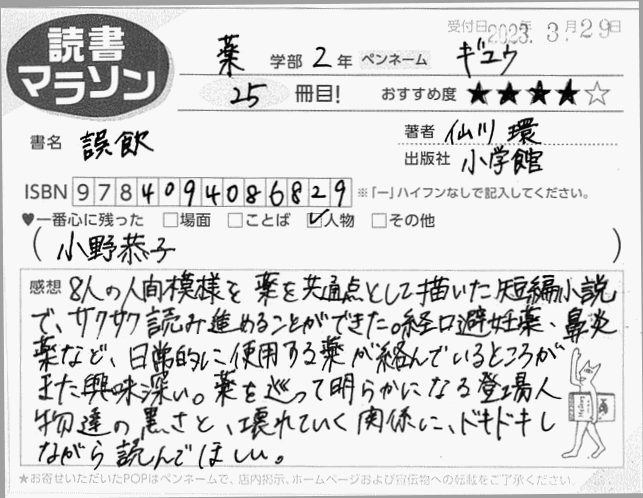 読書
マラソン
受付日 2023年 3月29日
薬 学部 2年 ペンネーム ギュウ
25 冊目! おすすめ度 ★★★★☆
書名 誤飲
著者 仙川 環
出版社 小学館
ISBN 9784094086829 ※「ー」ハイフンなしで記入してください。
♥一番心に残った □場面 □ことば ☑人物 □その他
( 小野恭子 )
感想 8人の人間模様を薬を共通点として描いた短編小説
で、サクサク読み進めることができた。経口避妊薬、鼻炎
薬など、日常的に使用する薬が絡んでいるところが
また興味深い。薬を巡って明らかになる登場人
物達の黒さと、壊れていく関係に、ドキドキし
ながら読んでほしい。
★お寄せいただいたPOPはペンネームで、店内掲示、ホームページおよび宣伝物への転載をご了承ください。